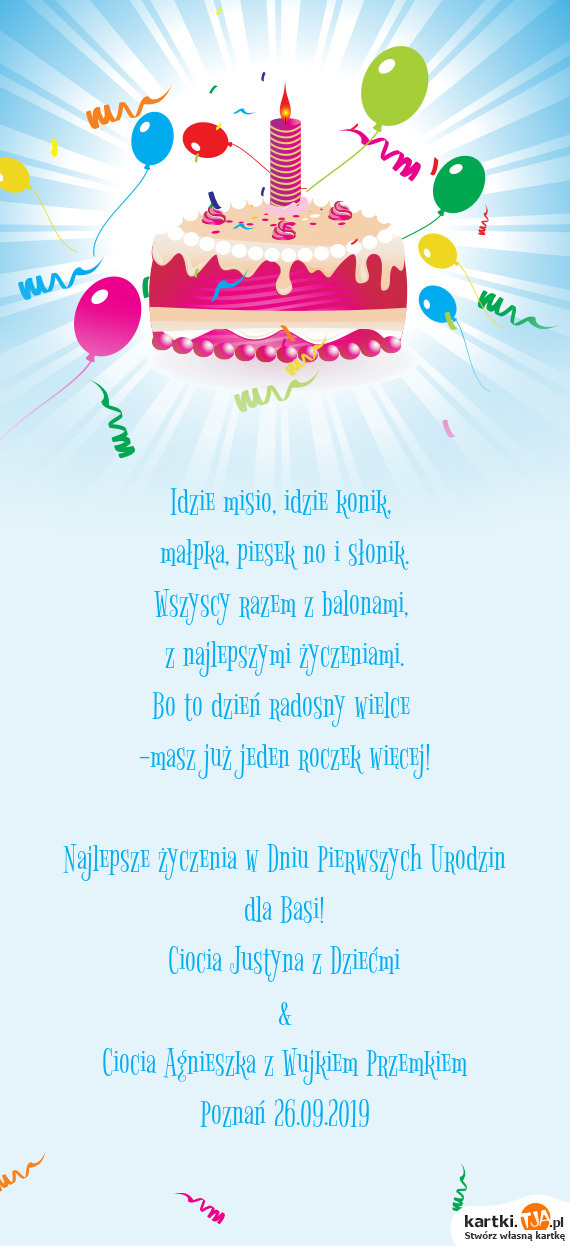 Idzie misio, idzie konik,
małpka, piesek no i słonik.
Wszyscy razem z balonami,
z najlepszymi życzeniami.
Bo to dzień radosny wielce
-masz już jeden roczek więcej!
Najlepsze życzenia w Dniu Pierwszych Urodzin
dla Basi!
Ciocia Justyna z Dziećmi
&
Ciocia Agnieszka z Wujkiem Przemkiem
Poznań 26.09.2019
kartki.TJA.pl
Stwórz własną kartkę